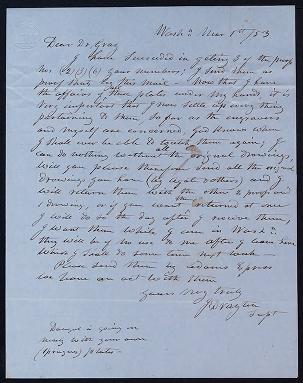 Wash: Mar 1st/53
Dear Dr. Gray
I have succeeded in geting 3 of the proofs
Nos (2)(3)(6) your numbers; I send them as
proof that by this mail - Now that I have
the affairs of these plates under my hand it is
very important that I now settle up every thing
pertaining to them, so far as the engravers
and myself are concerned, God knows when
I shall ever be able to together them again; I
can do nothing without all the original drawings,
Will you please therefore send all the original
drawings you have (of and I
will return them with the other 2 proofs and
1 drawing, or if you want them returned at once
I will do so the day after I receive them,
I want them while I am in Wash:n
they will be of no use to me after I leave here
where I shall do some next week -
Please send them by Adams Express
we have an act with them
Yours very truly
J Drayton
Supt
Dougal is going on
nicely with your own
(Sprague) plates -